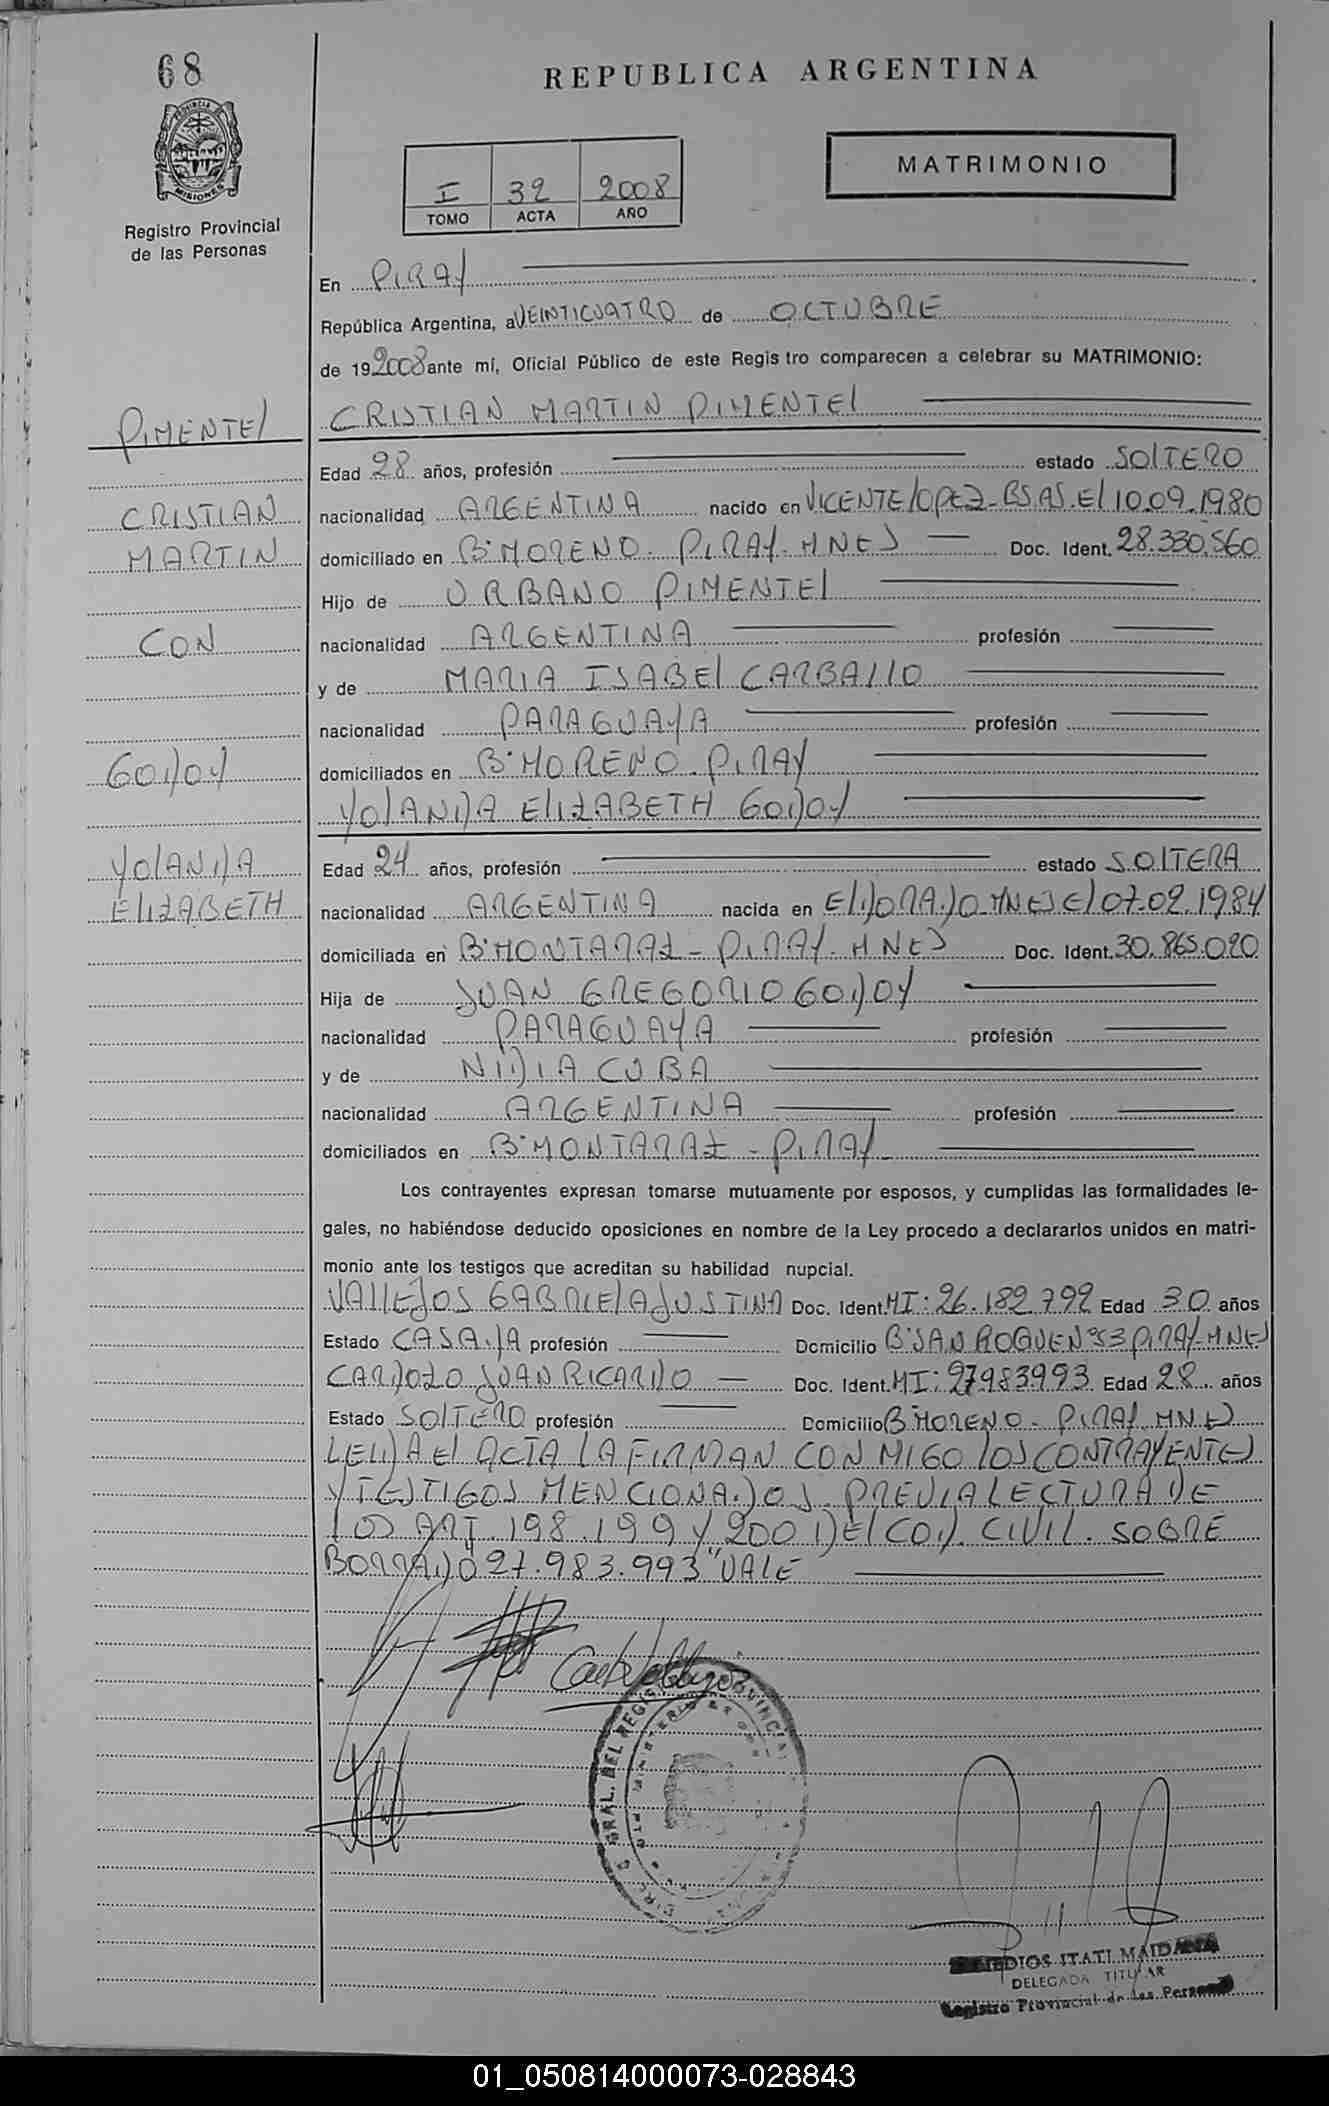 68
REPUBLICA ARGENTINA
PROVINCIA DE
MISIONES
MATRIMONIO
I 32 2008
TOMO ACTA AÑO
Registro Provincial
de las Personas
En PIRAY
República Argentina, a VEINTICUATRO de OCTUBRE
de 19 2008 ante mí, Oficial Público de este Regis tro comparecen a celebrar su MATRIMONIO:
PIMENTEl
CRISTIAN MARTIN PIMENTEl
Edad 28 años, profesión estado SOlTERO
CRISTIAN
nacionalidad ARGENTINA nacido en VICENTE lOPEZ-BS AS. El 10.09.1980
MARTIN
domiciliado en B° MORENO. PIRAY. MNES Doc. Ident. 28.330.560
Hijo de URBANO PIMENTEl
CON
nacionalidad ARGENTINA profesión
y de MARIA ISABEl CARBAllO
nacionalidad PARAGUAYA profesión
GODOY
domiciliados en B° MORENO. PIRAY
YOlANDA ElIZABETH GODOY
YOlANDA
Edad 24 años, profesión estado SOlTERA
ElIZABETH
nacionalidad ARGENTINA nacida en ElDORADO MNES El 07.02.1984
domiciliada en B° MONTARAZ - PIRAY. MNES Doc. Ident. 30.865.020
Hija de JUAN GREGORIO GODOY
nacionalidad PARAGUAYA profesión
y de NIDIA CUBA
nacionalidad ARGENTINA profesión
domiciliados en B° MONTARAZ - PIRAY
Los contrayentes expresan tomarse mutuamente por esposos, y cumplidas las formalidades le-
gales, no habiéndose deducido oposiciones en nombre de la Ley procedo a declararlos unidos en matri-
monio ante los testigos que acreditan su habilidad nupcial.
VAllEJOS GABRIElA JUSTINA Doc. Ident. MI: 26.182.792 Edad 30 años
Estado CASADA profesión Domicilio B° SAN ROQUE N° 53 PIRAY-MNES
CARDOZO JUAN RICARDO Doc. Ident. MI: 27.983.993 Edad 28 años
Estado SOlTERO profesión Domicilio B° MORENO - PIRAY MNES
LEIDA El ACTA lA FIRMAN CON MIGO lOS CONTRAYENTES
Y TESTIGOS MENCIONADOS. PREVIA LECTURA DE
lOS ART. 198.199 Y 200 DEl COD. CIVIL. SOBRE
BORRADO 27.983.993 "VALE
DIOS ITATI MAIDANA
DELEGADA TITULAR
Registro Provincial de las Personas
01_050814000073-028843